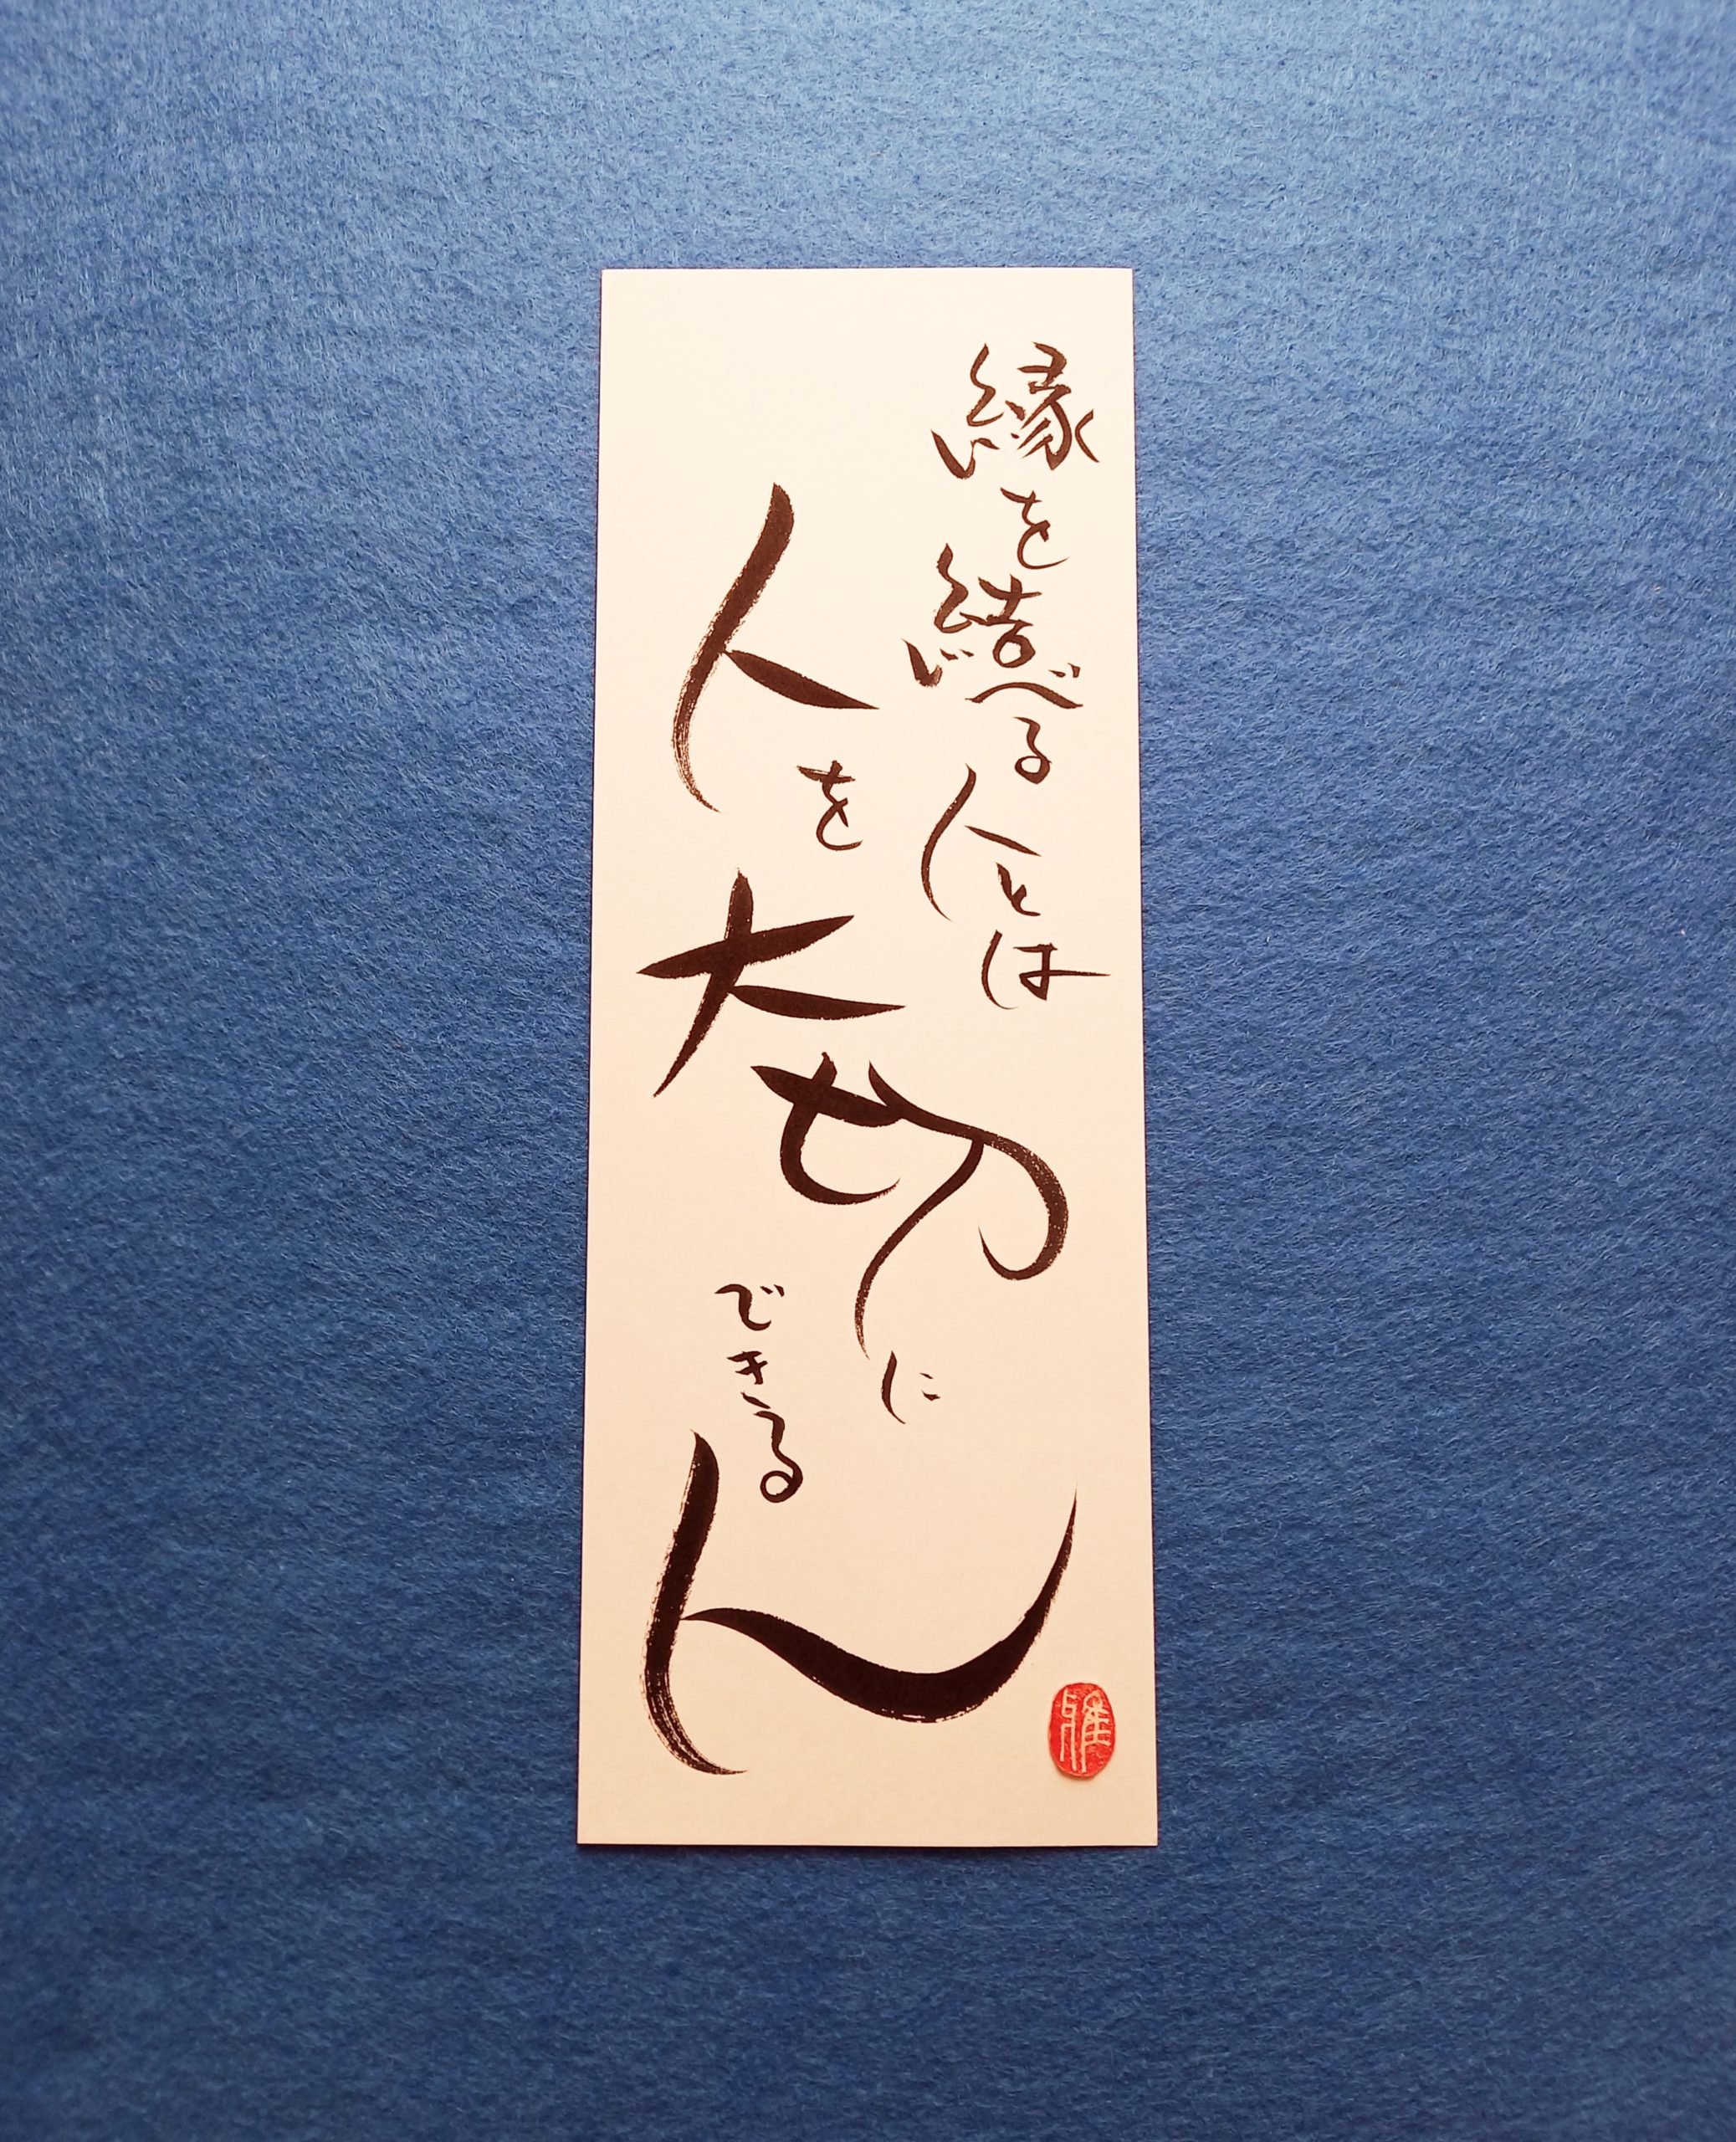 縁を結べる人とは
人を大切に
できる人
雅